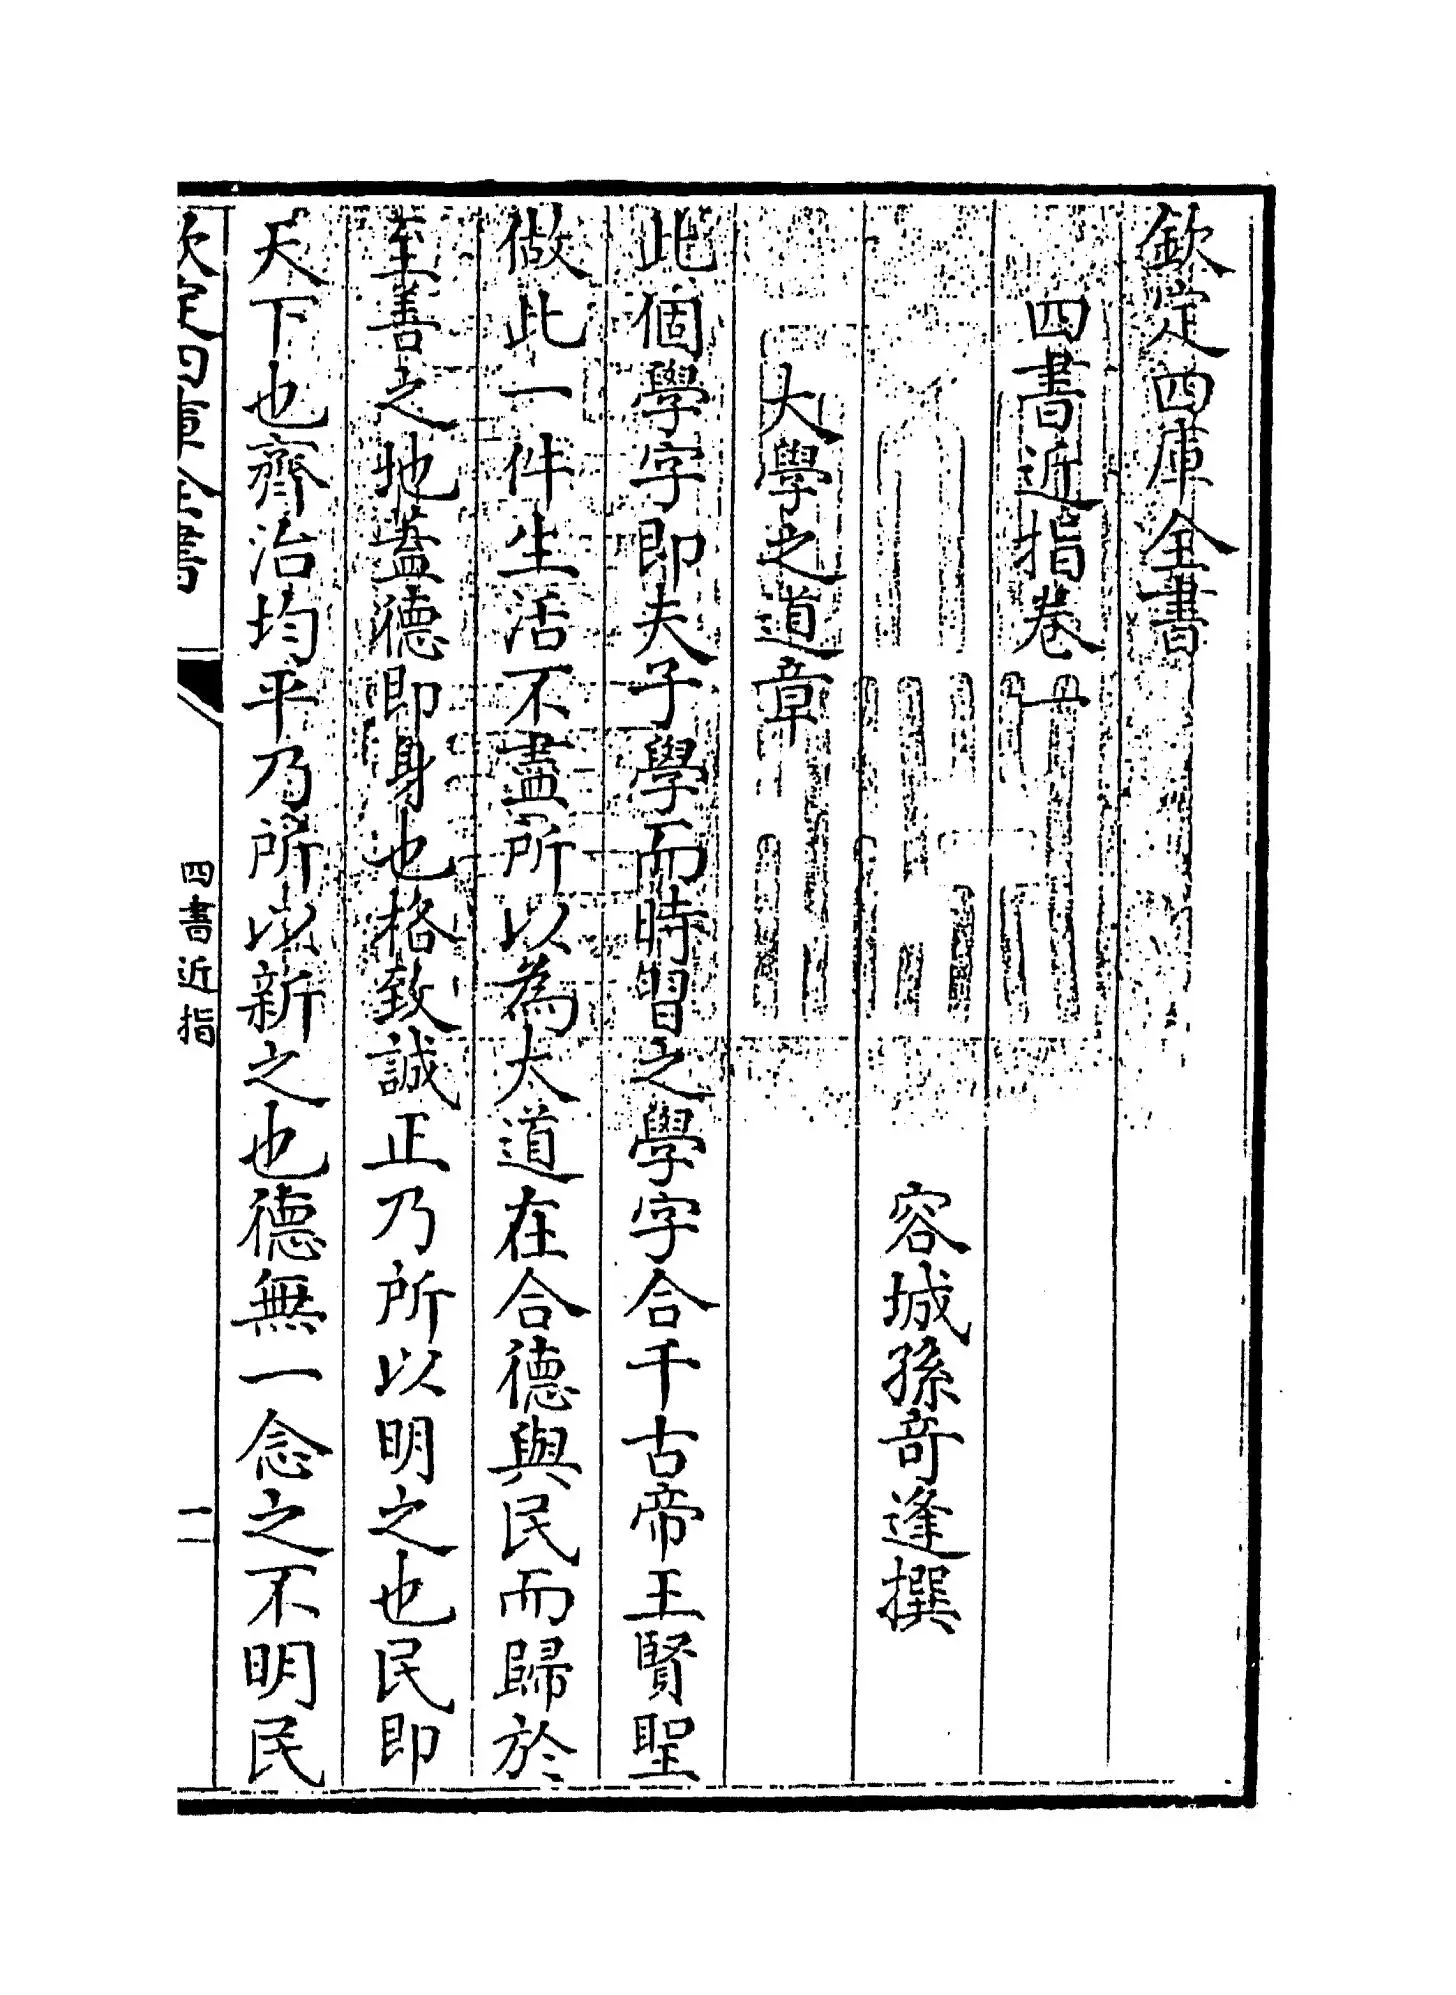 欽定四庫全書
四書近指卷一
容城孫奇逢撰
大學之道章
此個學字即夫子學而時習之學字合千古帝王賢聖
做此一件生活不盡所以為大道在合德與民而歸於
至善之地葢德即身也格致誠正乃所以明之也民即
天下也齊治均平乃所以新之也德無一念之不明民
欽定四庫全書
四書近指